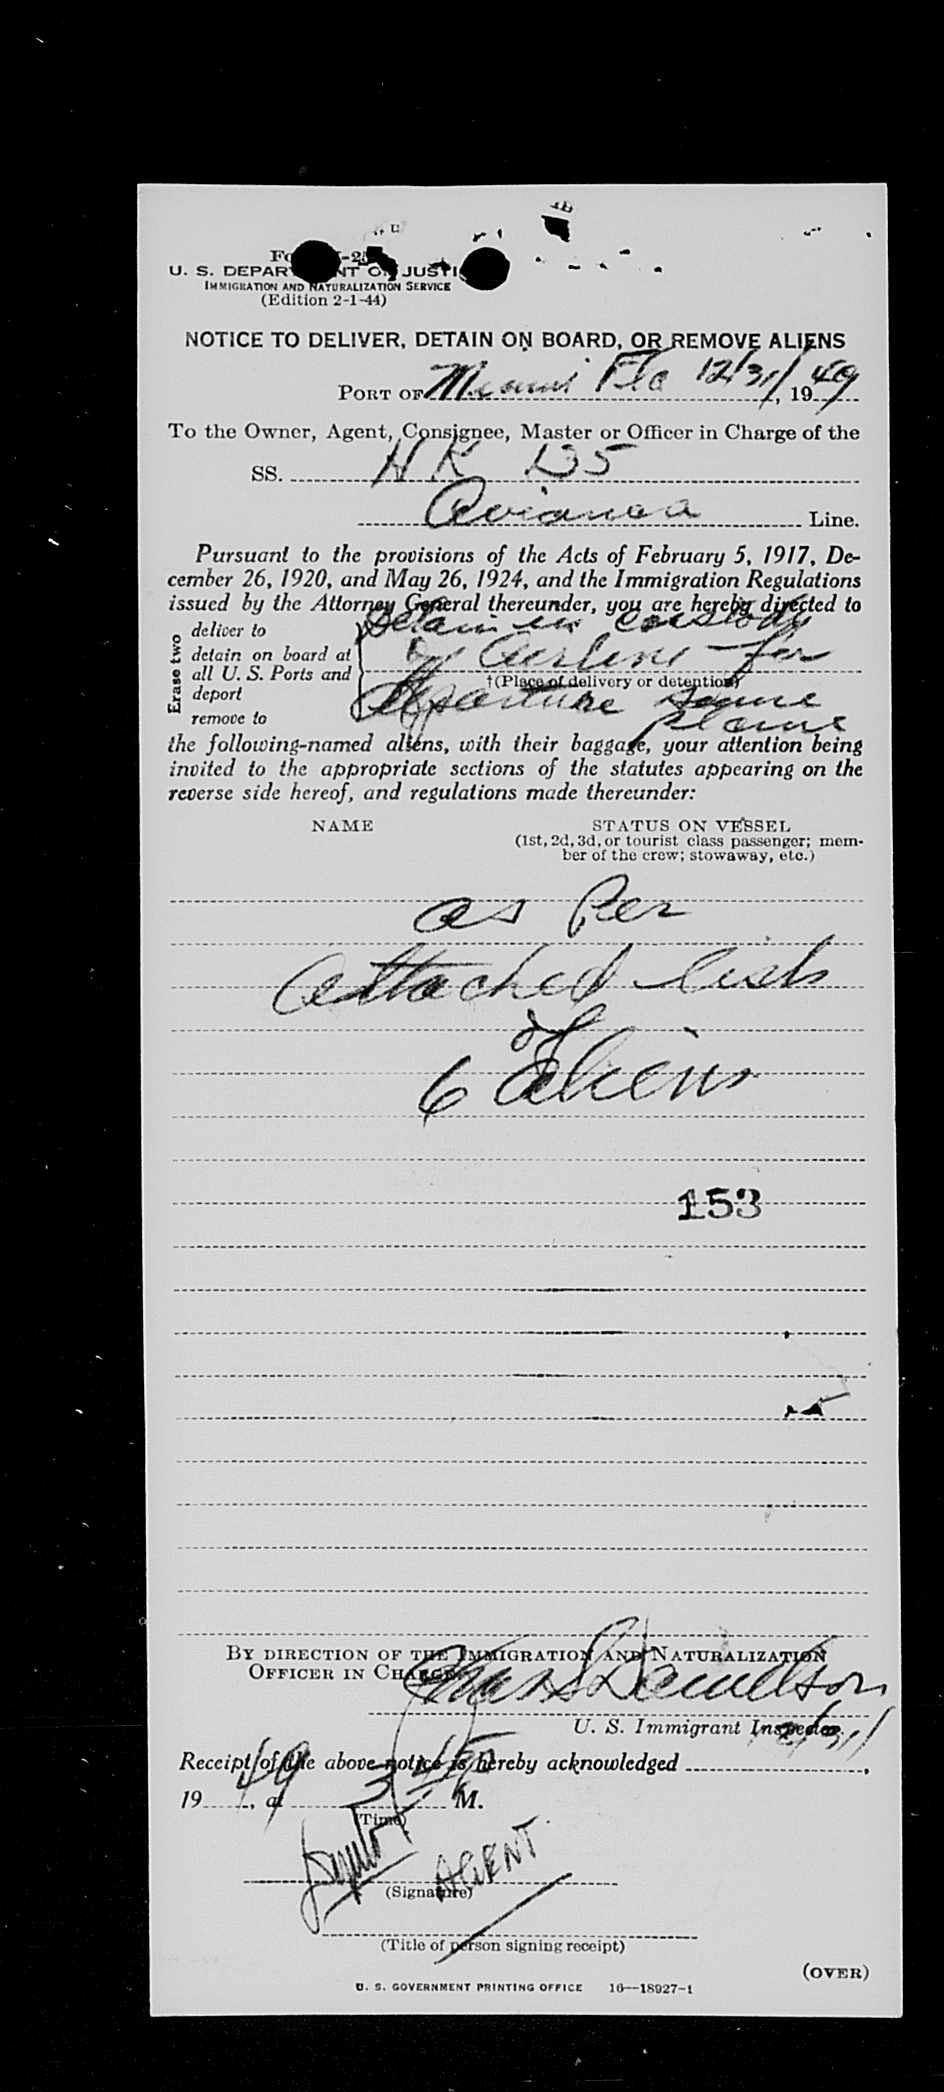 U. S. DEPARTMENT OF JUSTICE
IMMIGRATION AND NATURALIZATION SERVICE
(Edition 2-1-44)
NOTICE TO DELIVER, DETAIN ON BOARD, OR REMOVE ALIENS
PORT OF Miami Fla 12/31/, 1949
To the Owner, Agent, Consignee, Master or Officer in Charge of the
SS. HK 135
Avianca Line.
Pursuant to the provisions of the Acts of February 5, 1917, De-
cember 26, 1920, and May 26, 1924, and the Immigration Regulations
issued by the Attorney General thereunder, you are hereby directed to
Erase two
deliver to
detain on board at
all U. S. Ports and
deport
remove to
Detain in custody
of Airline for
†(Place of delivery or detention)
departure same
plane
the following-named aliens, with their baggage, your attention being
invited to the appropriate sections of the statutes appearing on the
reverse side hereof, and regulations made thereunder:
NAME STATUS ON VESSEL
(1st, 2d, 3d, or tourist class passenger; mem-
ber of the crew; stowaway, etc.)
as Per
attached lists
of
6 Aliens
153
BY DIRECTION OF THE IMMIGRATION AND NATURALIZATION
OFFICER IN CHARGE.
U. S. Immigrant Inspector.
12/31/
Receipt of the above notice is hereby acknowledged ,
1949, at 3 45 P M.
(Time)
AGENT
(Signature)
(Title of person signing receipt)
(OVER)
U. S. GOVERNMENT PRINTING OFFICE 16—18927-1